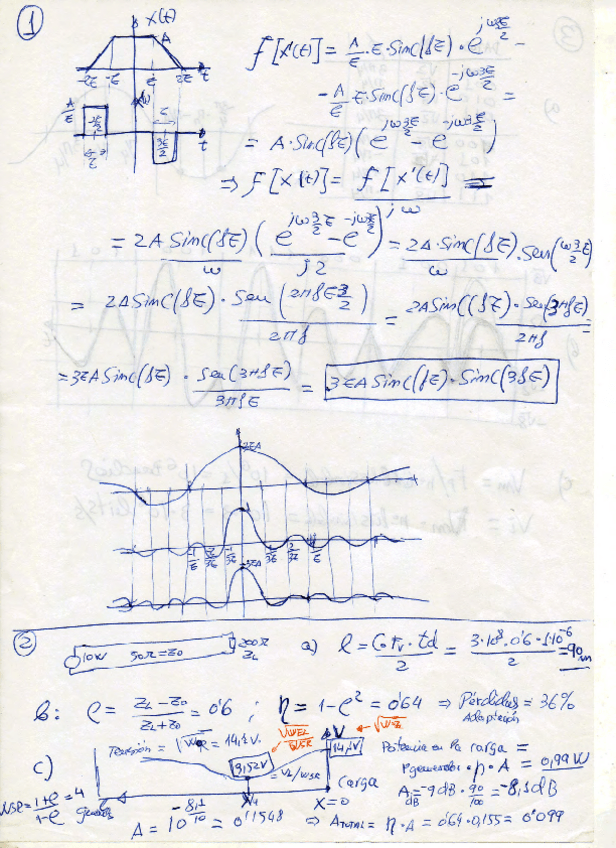 1
X(t)
A
-2ε -ε ε 2ε t
A/ε
3ε/2 t
f[X'(t)] = A/ε · ε · Sinc(fε) · e^{jω3ε/2} -
- A/ε ε · Sinc(fε) · e^{-jω3ε/2} =
= A · Sinc(fε) ( e^{jω3ε/2} - e^{-jω3ε/2} )
⇒ f[X(t)] = f[X'(t)] / jω =
= 2A Sinc(fε)/ω ( e^{jω3/2ε} - e^{-jω3ε/2} / j2 ) = 2A · Sinc(fε)/ω · Sen(ω3/2 ε)
= 2A Sinc(fε) · Sen(2πfε3/2) / 2πf = 2A Sinc(fε) · Sen(3πfε) / 2πf =
= 3εA Sinc(fε) · Sen(3πfε) / 3πfε = 3εA Sinc(fε) · Sinc(3fε)
-1/ε -2/3ε -1/3ε 1/3ε 2/3ε 1/ε
2
10W 50Ω = Z0 200Ω ZL
a) l = C·Fv·td / 2 = 3·10^8·0'6·1·10^-6 / 2 = 90m
b: ρ = ZL - Z0 / ZL + Z0 = 0'6 ; η = 1 - ρ² = 0'64 ⇒ Pérdidas = 36%
Adaptación
c)
Tensión = = 14,1V.
3,52V
14,1V
V
Potencia en la carga =
Pgenerador · η · A = 0,99W
WSR = 1+ρ / 1-ρ = 4
X=0
Carga
A dB = -9dB · 90/100 = -8,1dB
A = 10^{-8,1/10} = 0'1548 ⇒ ATOTAL = η · A = 0'64 · 0,155 = 0'099